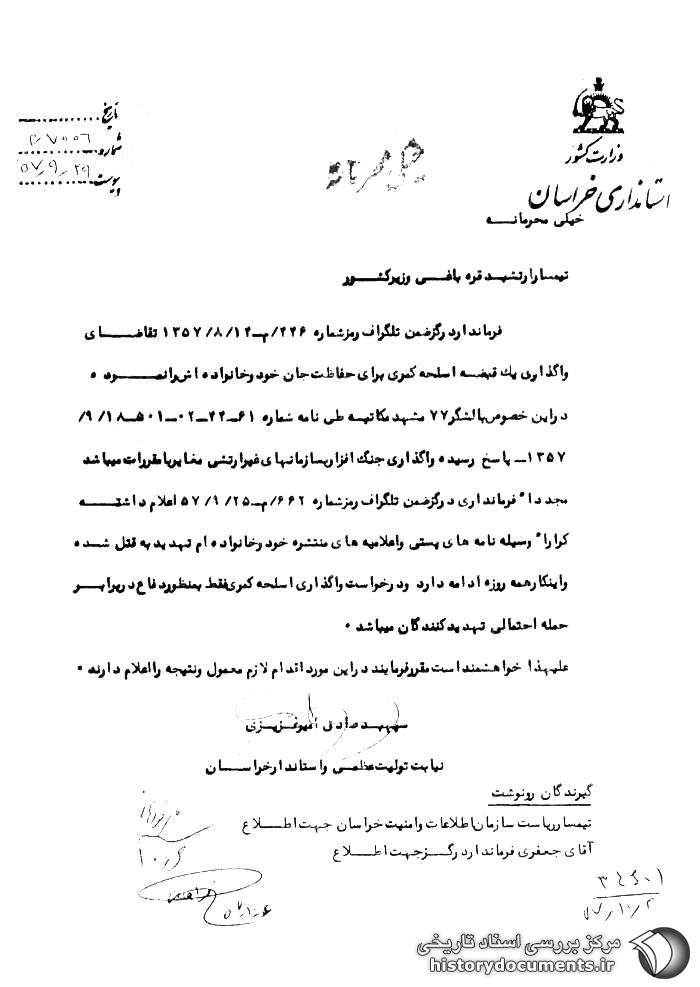 وزارت کشور
استانداری خراسان
تاریخ
شماره
پیوست ۵۷/۹/۲۹
خیلی محرمانه
خیلی محرمانه
تیمسار ارتشبد قره باغی وزیر کشور
فرماندار درگز ضمن تلگراف رمز شماره ۴۴۶/م-۱۳۵۷/۸/۱۴ تقاضای
واگذاری یك قبضه اسلحه کمری برای حفاظت جان خود و خانواده اش را نموده
در این خصوص با لشگر ۷۷ مشهد مکاتبه طی نامه شماره ۶۱-۴۴-۰۲-۵۰۱-۹/۱۸/
۱۳۵۷- پاسخ رسیده واگذاری جنگ افزار بسازمانهای غیر ارتشی مغایر با مقررات میباشد
مجدداً فرمانداری درگز ضمن تلگراف رمز شماره ۶۶۲/م-۵۷/۹/۲۵ اعلام داشته
کراراً وسیله نامه های پستی و اعلامیه های منتشره خود و خانواده ام تهدید به قتل شده
و اینکار همه روزه ادامه دارد و درخواست واگذاری اسلحه کمری فقط بمنظور دفاع در برابر
حمله احتمالی تهدید کنندگان میباشد ۰
علیهذا خواهشمند است مقرر فرمایند در این مورد اقدام لازم معمول و نتیجه را اعلام دارند ۰
سپهبد صادق امیرعزیزی
نیابت تولیت عظمی و استاندار خراسان
گیرندگان رونوشت
تیمسار ریاست سازمان اطلاعات و امنیت خراسان جهت اطلاع
آقای جعفری فرماندار درگز جهت اطلاع
۱۰/۶
۳۴۶۰۱
۵۷/۱۰/۲
مرکز بررسی اسناد تاریخی
historydocuments.ir